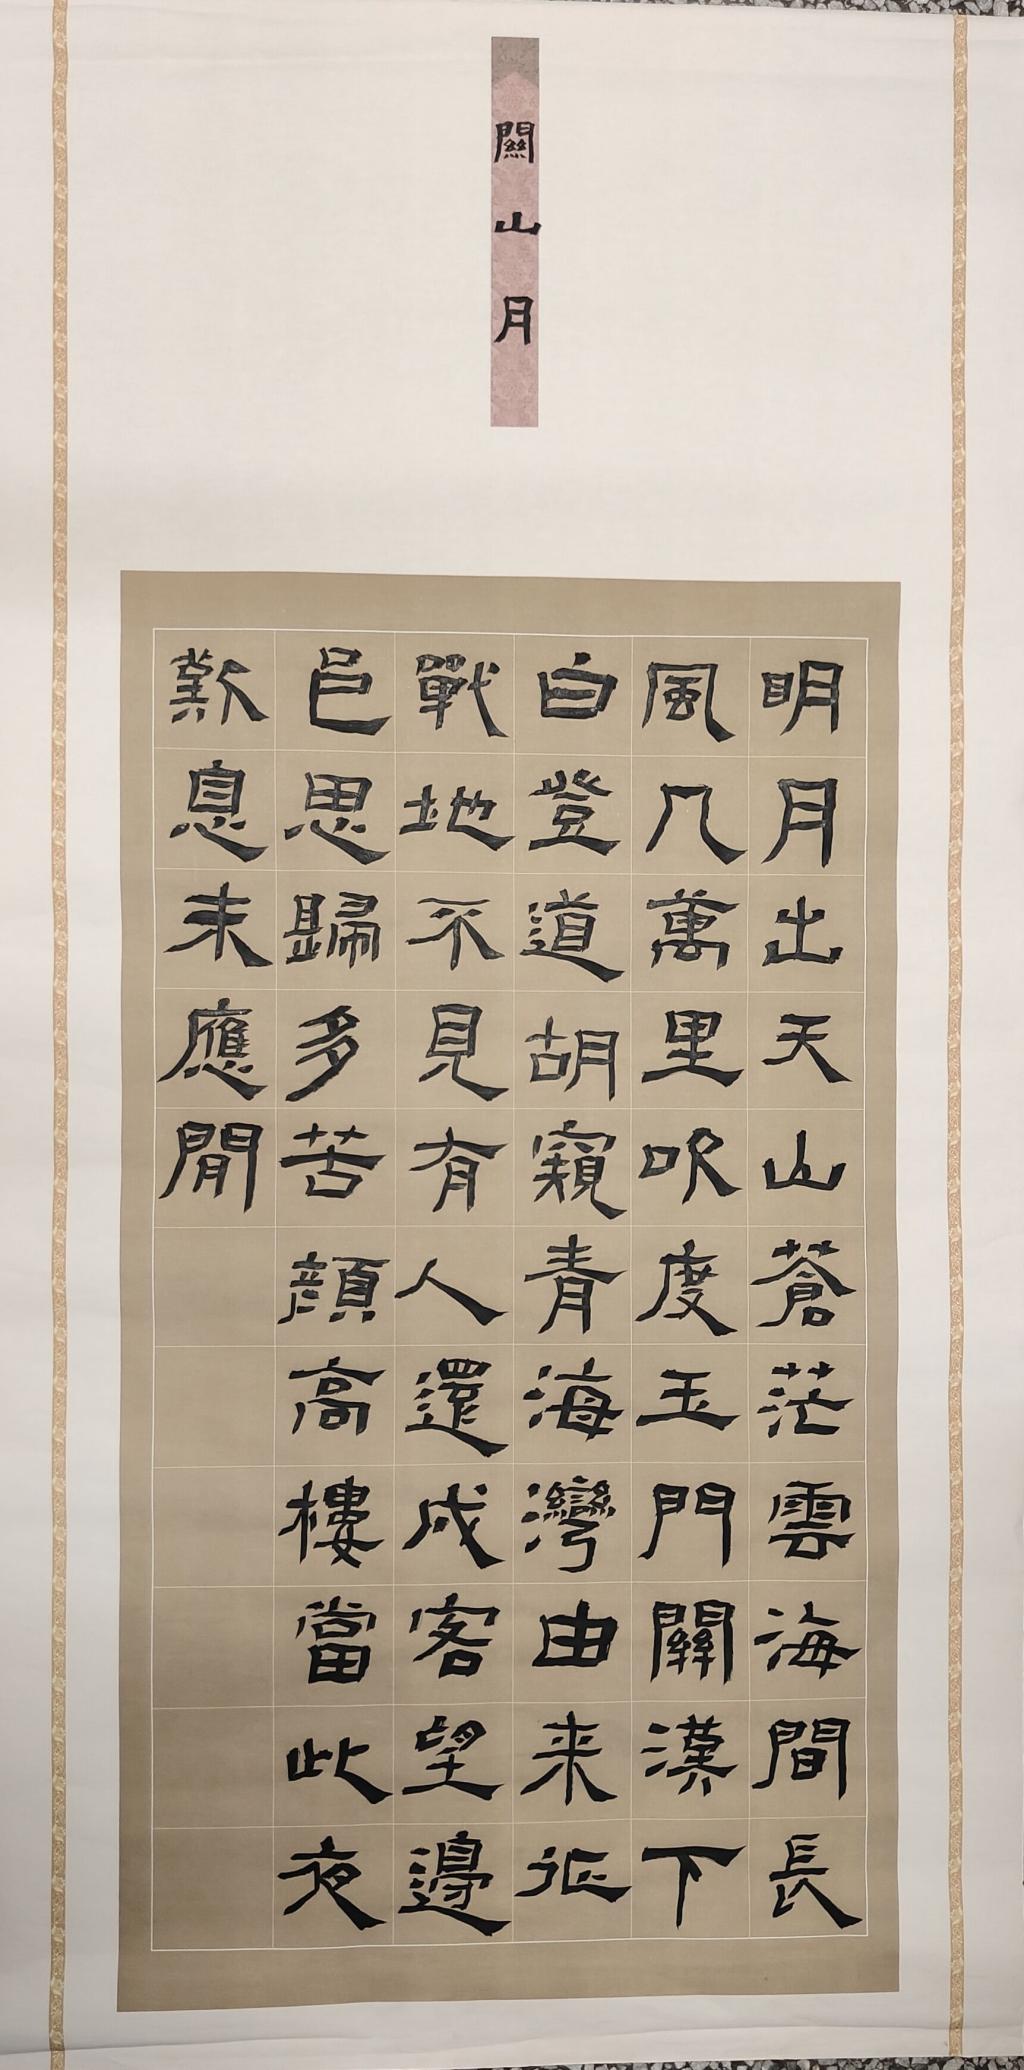 關山月
明月出天山蒼茫雲海間長
風几萬里吹度玉門關漢下
白登道胡窺青海灣由来征
戰地不見有人還戍客望邊
邑思歸多苦顏高樓當此夜
歎息未應閒